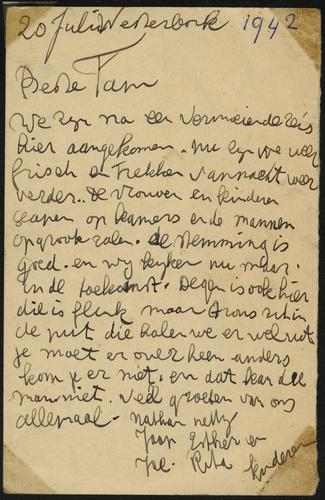 20 Juli Westerbork 1942
Beste Tam
We zijn na een vermoeiende reis
hier aangekomen. Nu zijn we weer
frisch en trekken vannacht weer
verder. De vrouwen en kinderen
slapen op kamers en de mannen
op groote zalen. de stemming is
goed. en wij kijken nu maar.
in de toekomst. Degen is ook hier
die is flink maar Arons zit in
de put die halen we er wel uit
je moet er over heen anders
kom je er niet. en dat kan die
man niet. veel groeten van ons
allemaal. Nathan netty
Jaap Esther en
Rita kinderen